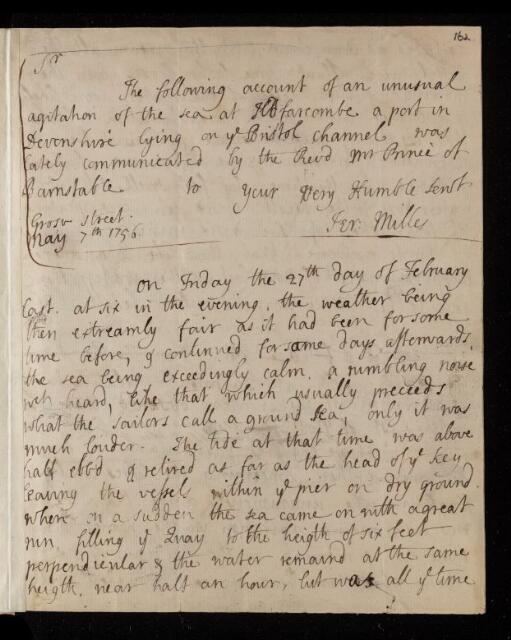 162
Sr
The following account of an unusual
agitation of the sea at Ilfarcombe a port in
Devonshire lying on ye Bristol channel was
lately communicated by the Revd Mr Prince of
Barnstable to your Very Humble Servt
Jer: Milles
Grosv street.
May 7th 1756.
On Friday the 27th day of February
last. at six in the evening, the weather being
then extreamly fair as it had been for some
time before, & continued for some days afterwards
the sea being exceedingly calm, a rumbling noise
was heard, like that which usually preceeds
what the sailors call a ground sea, only it was
much louder. The tide at that time was above
half ebb'd & retired as far as the head of ye Key
leaving the vessels within ye pier on dry ground
when on a sudden the sea came on with a great
run filling ye Quay to the heigth of six feet
perpendicular & the water remaind at the same
heigth near half an hour, but was all ye time